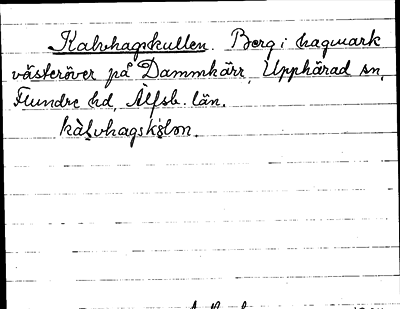 Kalvhagskullen. Berg i hagmark
västeröver på Dammkärr, Upphärad sn,
Flundre hd, Älfsb. län.